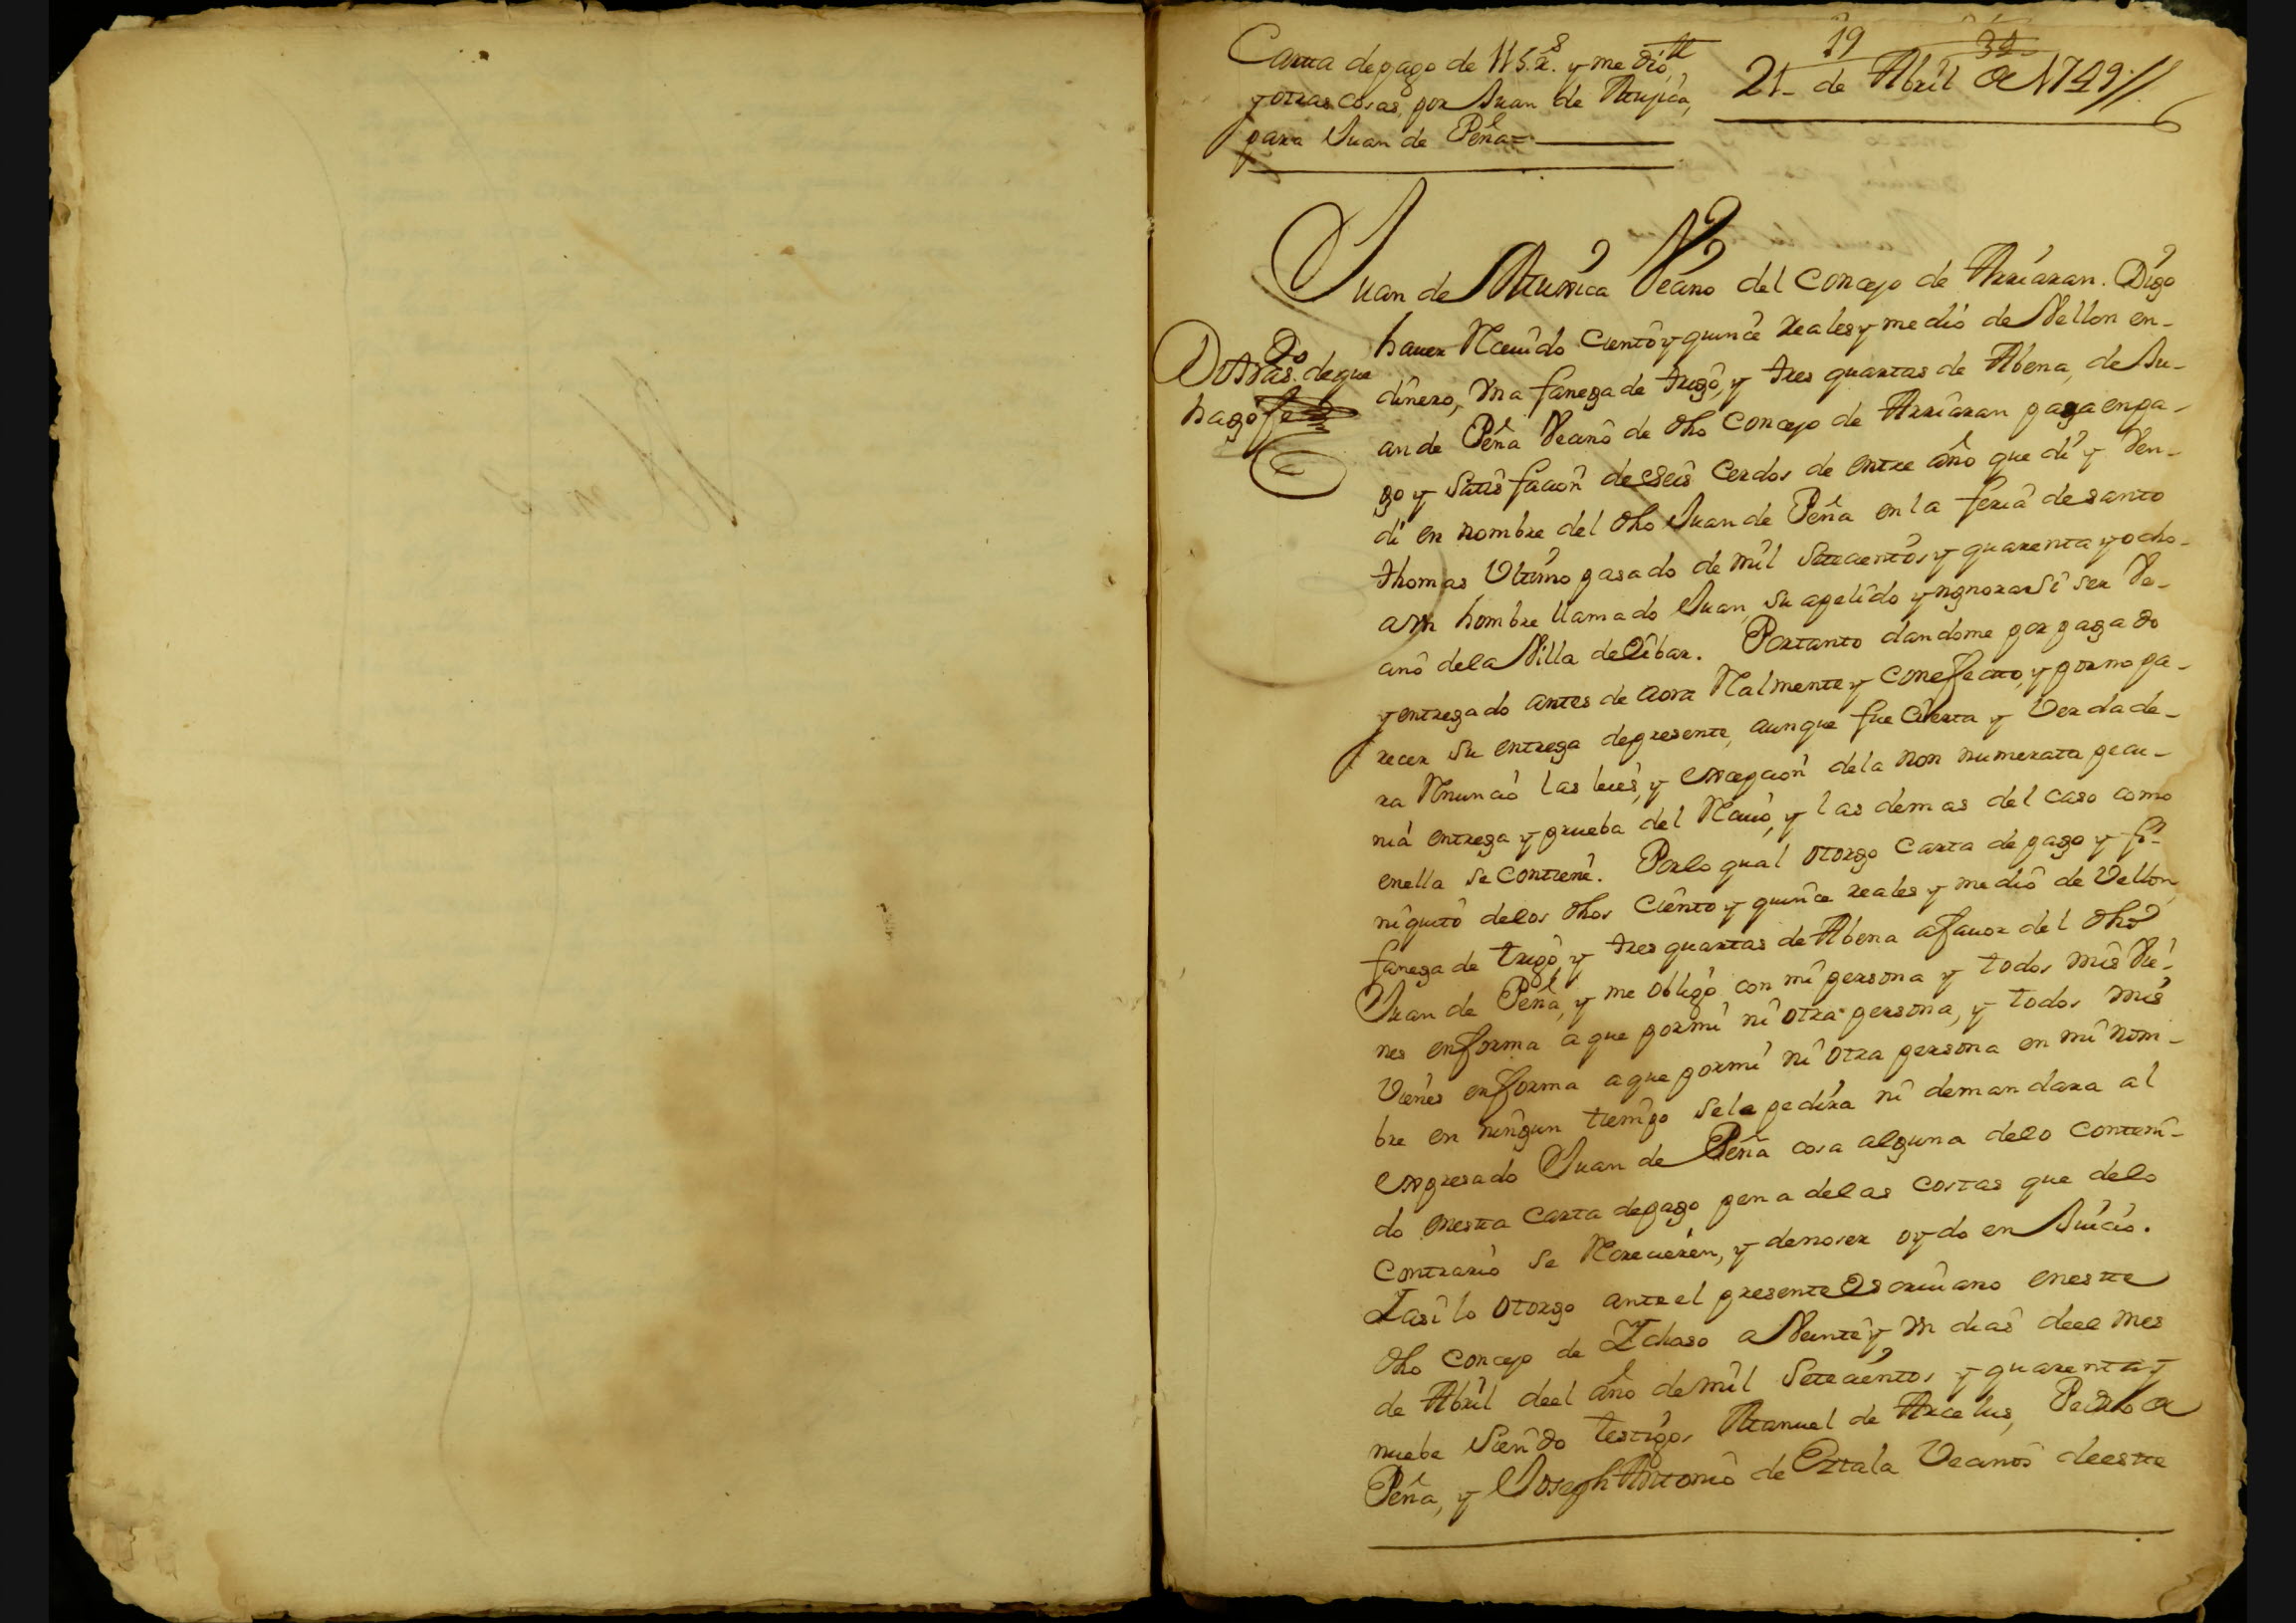 19 34
Carta de pago de 115 rs. y medio
y otras cosas, por Juan de Mujica,
para Juan de Peña=
21 de Abril de 1749//.
Juan de Muxica Vecino del concejo de Arriaran. Digo
haver Recivido ciento y quince reales y medio de Vellon en-
dinero, Una fanega de trigo, y tres quartas de Abena, de Ju-
an de Peña Vecino de dho concejo de Arriaran para en pa-
go y satisfacion de seis Cerdos de entre año que di y Ven-
di en nombre del dho Juan de Peña en la feria de santo
thomas Ultimo pasado de mil setecientos y quarenta y ocho-
a un hombre llamado Juan, su apelido y ygnorar si ser Ve-
cino de la Villa de Eibar. Portanto dandome por pagado
y entregado antes de aora Realmente y con efecto, y por no pa-
recer su entrega de presente, aunque fue Cierta y Verdade-
ra Renuncio las leies, y excepcion de la non numerata pecu-
nia entrega y prueba del Recivo, y las demas del caso como
en ella se contiene. Por lo qual otorgo Carta de pago y fi-
niquito de los dhos Ciento y quince reales y medio de Vellon,
fanega de trigo y tres quartas de Abena a favor del dho
Juan de Peña, y me obligo con mi persona y todos mis Vie-
nes en forma a que por mi ni otra persona, y todos mis
Vienes en forma a que por mi ni otra persona en mi nom-
bre en ningun tiempo se le pedira ni demandara al
expresado Juan de Peña cosa alguna de lo conteni-
do en esta Carta de pago pena de las costas que de lo
contrario se Recrecieren, y de no ser oydo en Juicio.
I asi lo otorgo ante el presente Escrivano en este
dho concejo de Ichaso a Veinte y un dias de el mes
de Abril de el año de mil setecientos y quarenta y
nuebe siendo testigos Manuel de Arcelus, Pedro de
Peña, y Joseph Antonio de Oztala Vecinos de este
Dotras. de que
hago fe